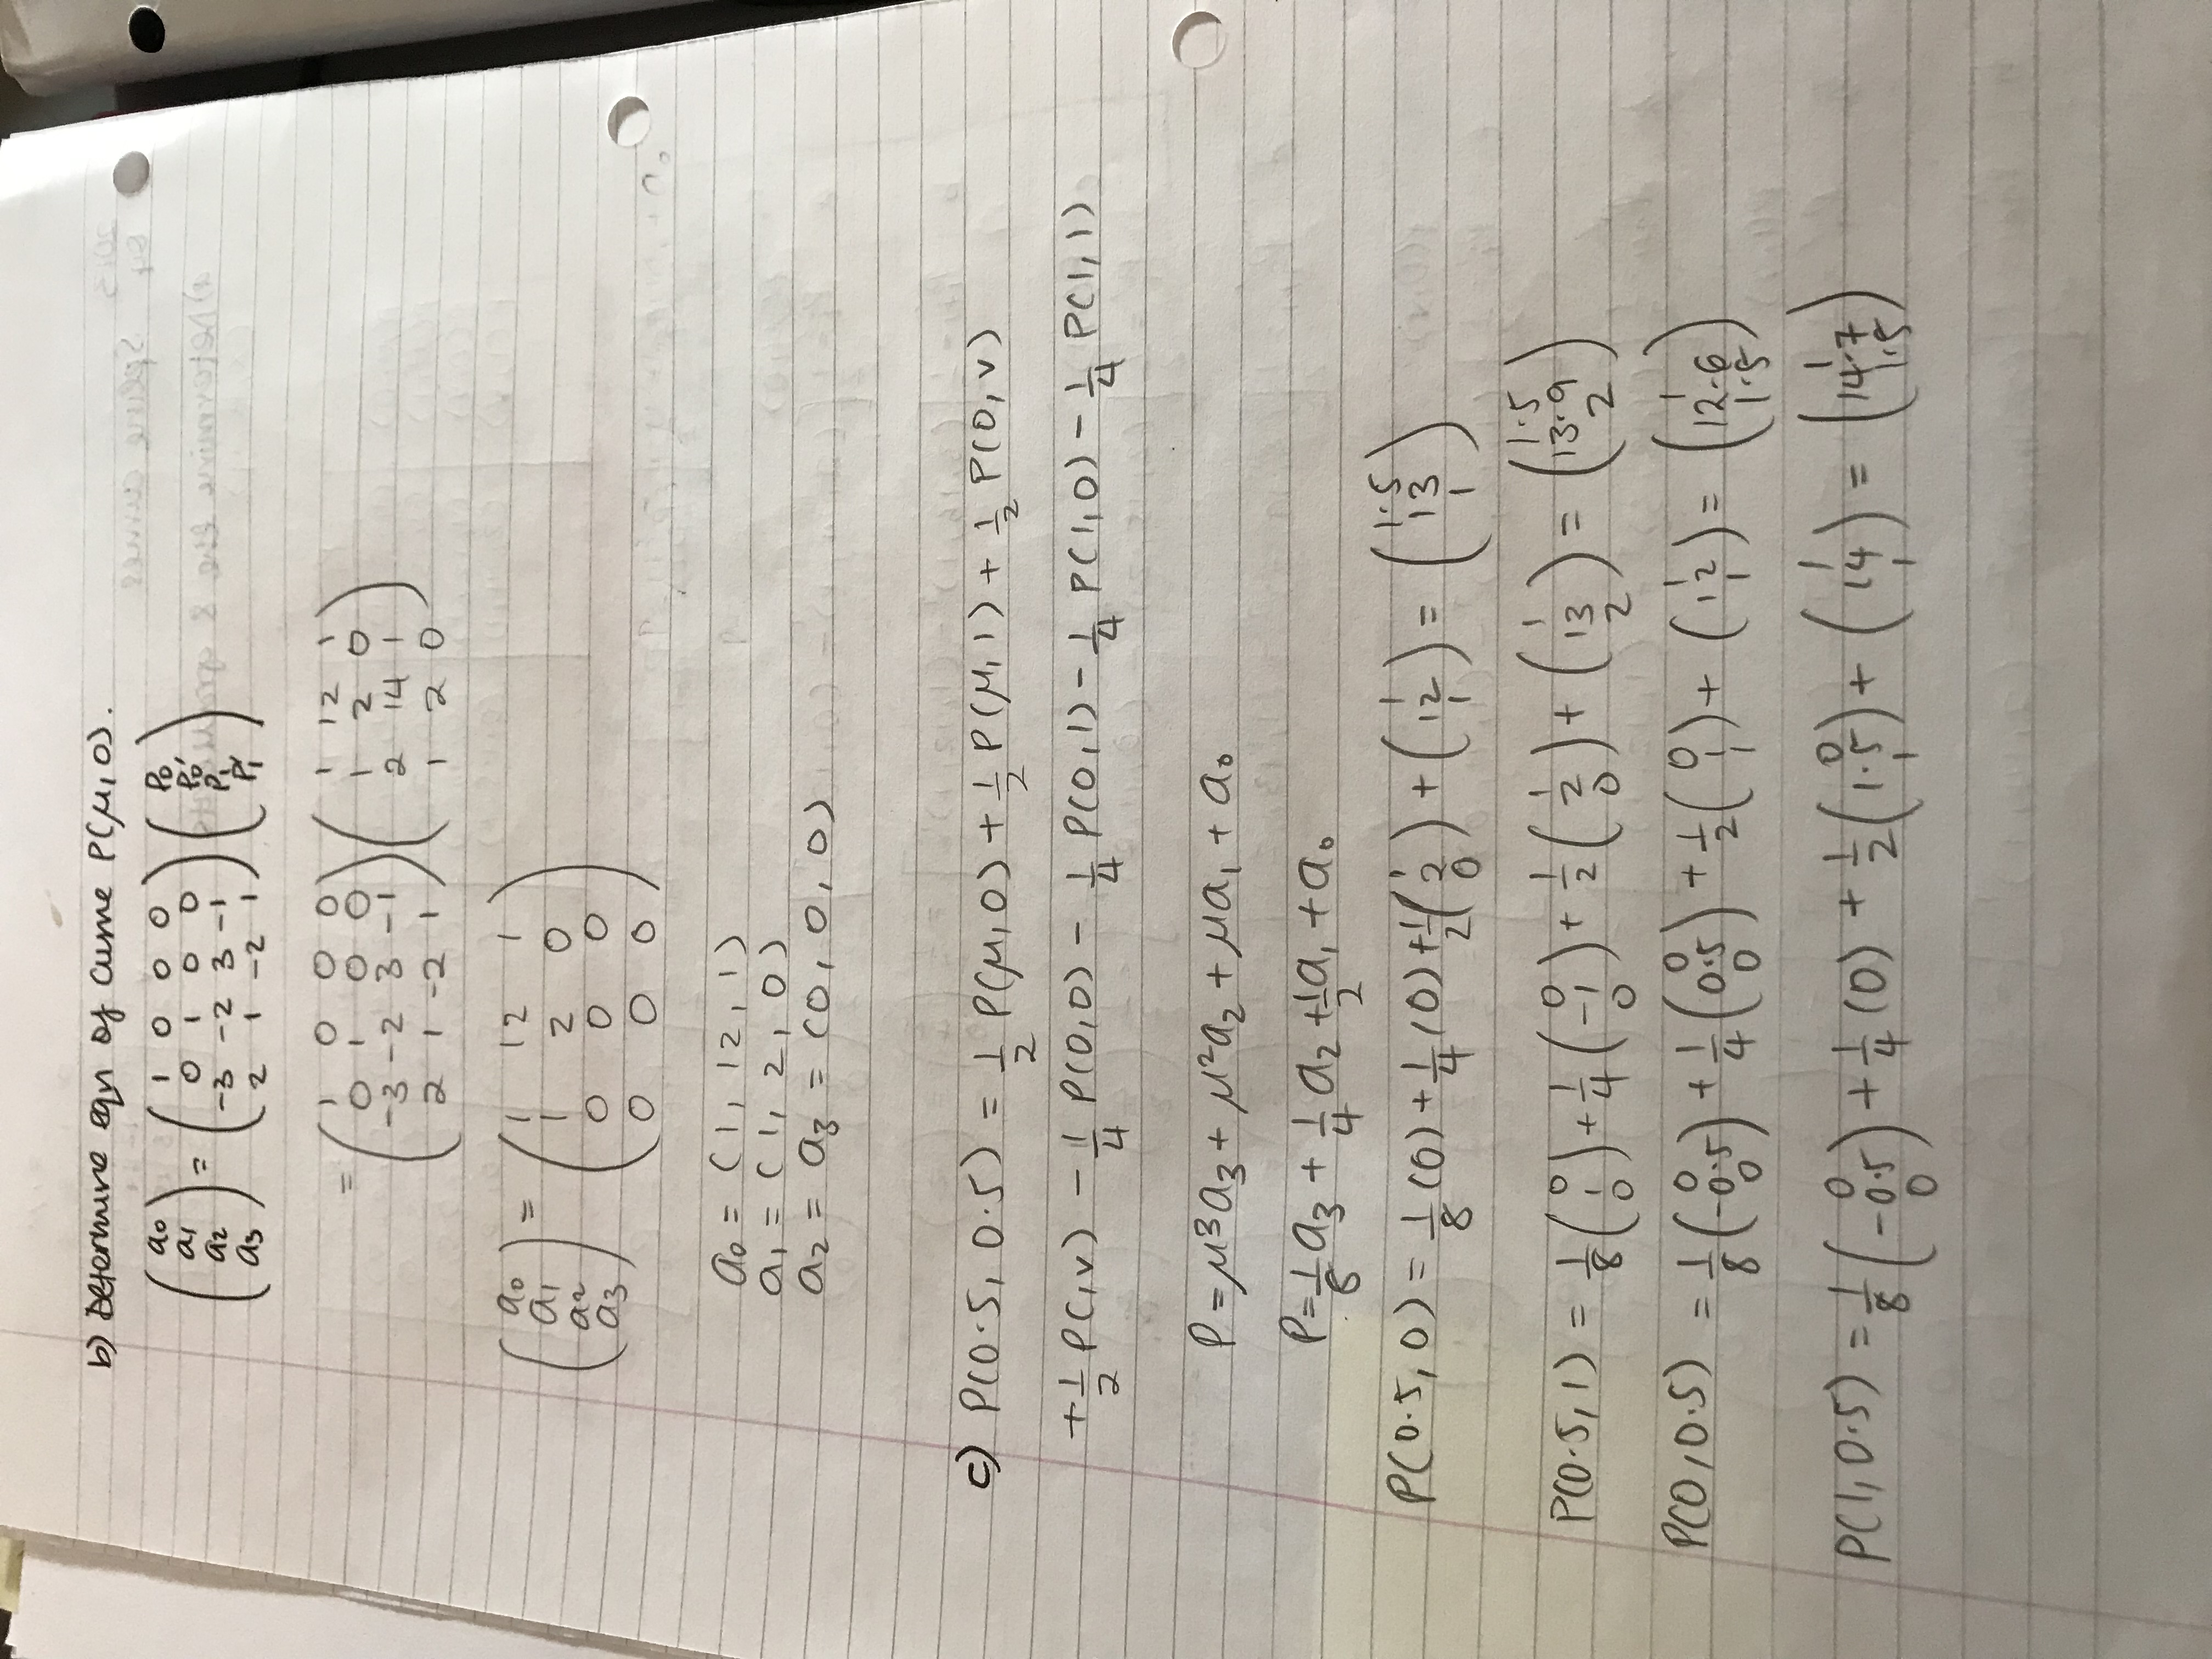 b) Determine eqn of curve P(μ, 0).
(a₀ a₁ a₂ a₃) = (1 0 0 0 / 0 1 0 0 / -3 -2 3 -1 / 2 1 -2 1) (P₀ P₀' P₁ P₁')
= (1 0 0 0 / 0 1 0 0 / -3 -2 3 -1 / 2 1 -2 1) (1 12 1 / 1 2 0 / 2 14 1 / 1 2 0)
(a₀ a₁ a₂ a₃) = (1 12 1 / 1 2 0 / 0 0 0 / 0 0 0)
a₀ = (1, 12, 1)
a₁ = (1, 2, 0)
a₂ = a₃ = (0, 0, 0)
c) P(0.5, 0.5) = 1/2 P(μ, 0) + 1/2 P(μ, 1) + 1/2 P(0, v)
+ 1/2 P(, v) - 1/4 P(0, 0) - 1/4 P(0, 1) - 1/4 P(1, 0) - 1/4 P(1, 1)
P = μ³a₃ + μ²a₂ + μa₁ + a₀
P = 1/8 a₃ + 1/4 a₂ + 1/2 a₁ + a₀
P(0.5, 0) = 1/8 (0) + 1/4 (0) + 1/2 (1 2 0) + (1 12 1) = (1.5 13 1)
P(0.5, 1) = 1/8 (0 1 0) + 1/4 (0 -1 0) + 1/2 (1 2 0) + (1 13 2) = (1.5 13.9 2)
P(0, 0.5) = 1/8 (0 -0.5 0) + 1/4 (0 0.5 0) + 1/2 (0 1 1) + (1 12 1) = (1 12.6 1.5)
P(1, 0.5) = 1/8 (0 -0.5 0) + 1/4 (0) + 1/2 (0 1.5 1) + (1 14 1) = (1 14.7 1.5)